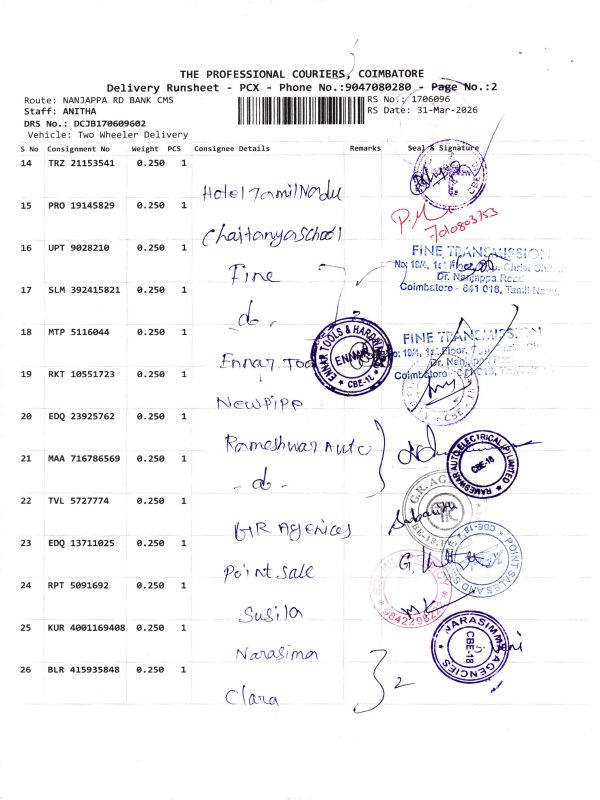 THE PROFESSIONAL COURIERS, COIMBATORE
Delivery Runsheet - PCX - Phone No.:9047080280 - Page No.:2
Route: NANJAPPA RD BANK CMS
RS No.: 1706096
Staff: ANITHA
RS Date: 31-Mar-2026
DRS No.: DCJB170609602
Vehicle: Two Wheeler Delivery
S No Consignment No Weight PCS Consignee Details Remarks Seal & Signature
14 TRZ 21153541 0.250 1
Hotel Tamil Nadu
15 PRO 19145829 0.250 1
Chaitanya School
P.M
7010803753
16 UPT 9028210 0.250 1
Fine
FINE TRANSMISSION
No: 19/4, 1st Floor,
Dr. Nanjappa Road
Coimbatore - 641 018, Tamil Nadu
17 SLM 392415821 0.250 1
-do-
18 MTP 5116044 0.250 1
Ennar Tools
ENNAR TOOLS & HARDWARE
ENNAR
CBE-18
FINE TRANSMISSION
No: 19/4, 1st Floor,
Dr. Nanjappa Road
Coimbatore - 641 018, Tamil
19 RKT 10551723 0.250 1
New Pipp
20 EDQ 23925762 0.250 1
Rameshwar Auto
21 MAA 716786569 0.250 1
-do-
RAMESWAR AUTO ELECTRICAL (P) LIMITED
CBE-18
22 TVL 5727774 0.250 1
GR Agences
G.R. AG
23 EDQ 13711025 0.250 1
Point Sale
POINT SALES AND
CBE-18
24 RPT 5091692 0.250 1
Susila
25 KUR 4001169408 0.250 1
Narasima
NARASIMMA AGENCIES
CBE-18
26 BLR 415935848 0.250 1
Clara
2